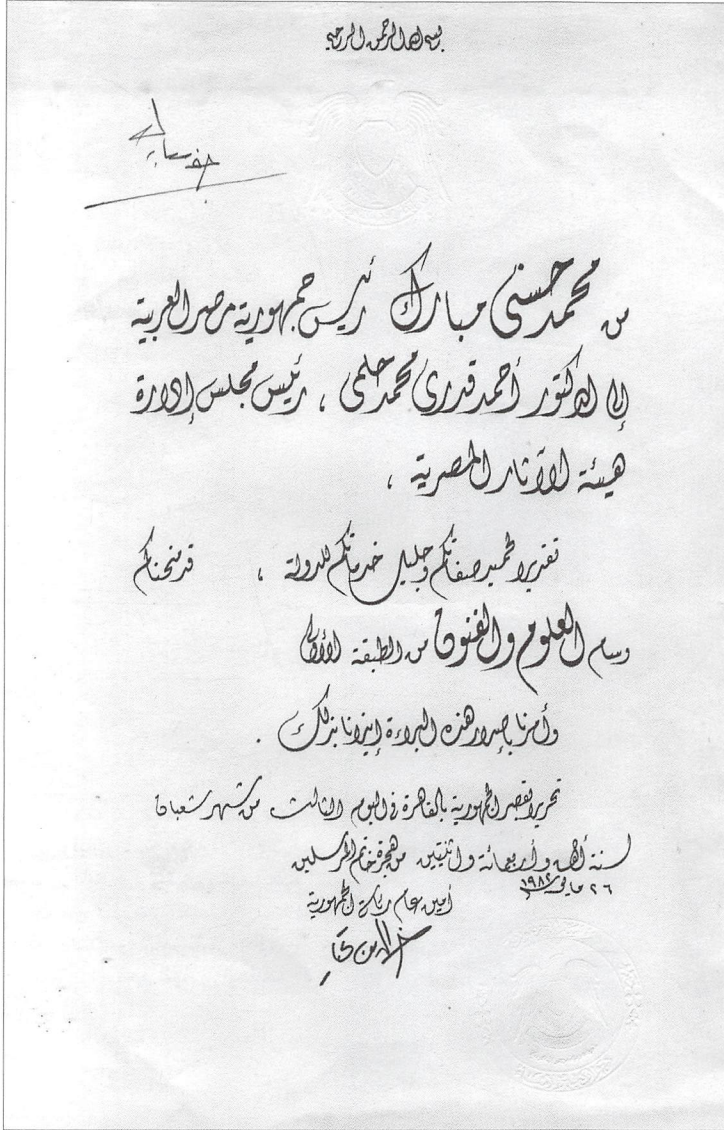 بسم الله الرحمن الرحيم
من محمد حسنى مبارك رئيس جمهورية مصر العربية
إلى الدكتور أحمد قدرى محمد حلمى ، رئيس مجلس إدارة
هيئة الآثار المصرية ،
تقديرا لحميد صفاتكم وجليل خدماتكم للدولة ، قد منحناكم
وسام العلوم والفنون من الطبقة الأولى
وأمرنا بإصدار هذه البراءة إيذانا بذلك .
تحريرا بقصر الجمهورية بالقاهرة فى اليوم الثالث من شهر شعبان
لسنة ألف وأربعمائة واثنتين من هجرة خاتم المرسلين
٢٦ مايو ١٩٨٢
أمين عام رئاسة الجمهورية